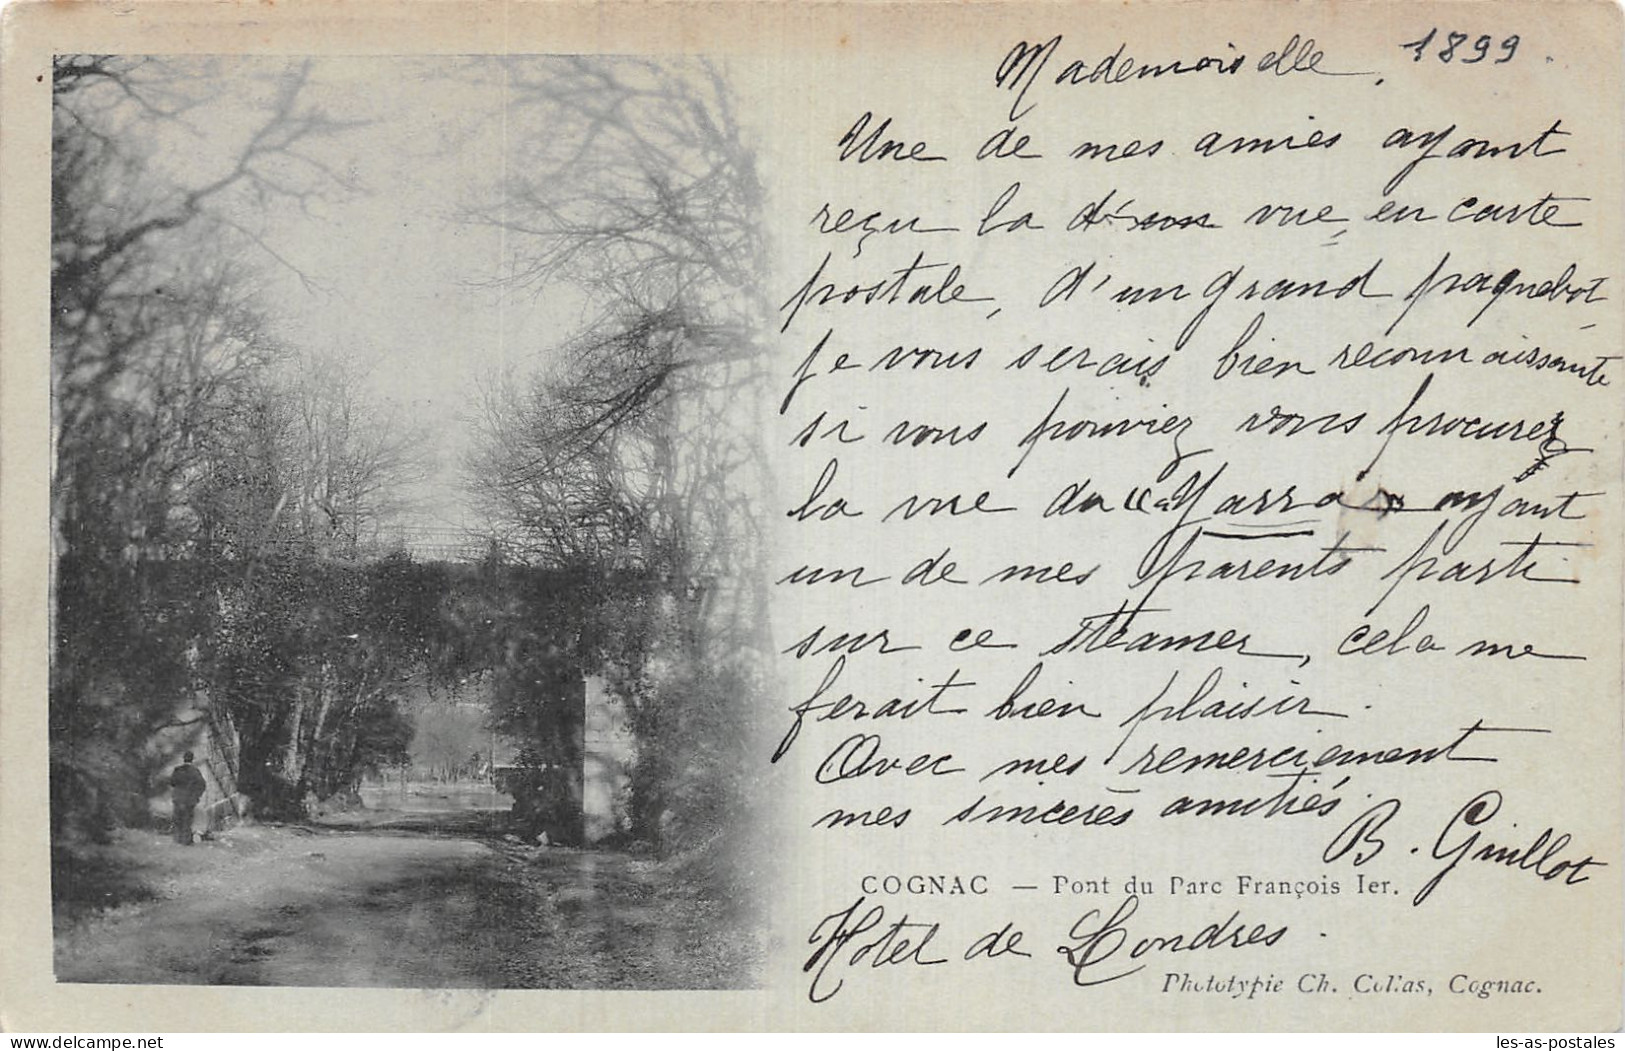 Mademoiselle, 1899.
Une de mes amies ayant
reçu la vue, en carte
postale, d'un grand paquebot
je vous serais bien reconnaissante
si vous pouviez vous procurer
la vue du "Yarra" ayant
un de mes parents parti
sur ce steamer, cela me
ferait bien plaisir.
Avec mes remerciement
mes sincères amitiés.
B. Guillot
COGNAC — Pont du Parc François Ier.
Hotel de Londres.
Phototypie Ch. Collas, Cognac.
delcampe.net
les-as-postales